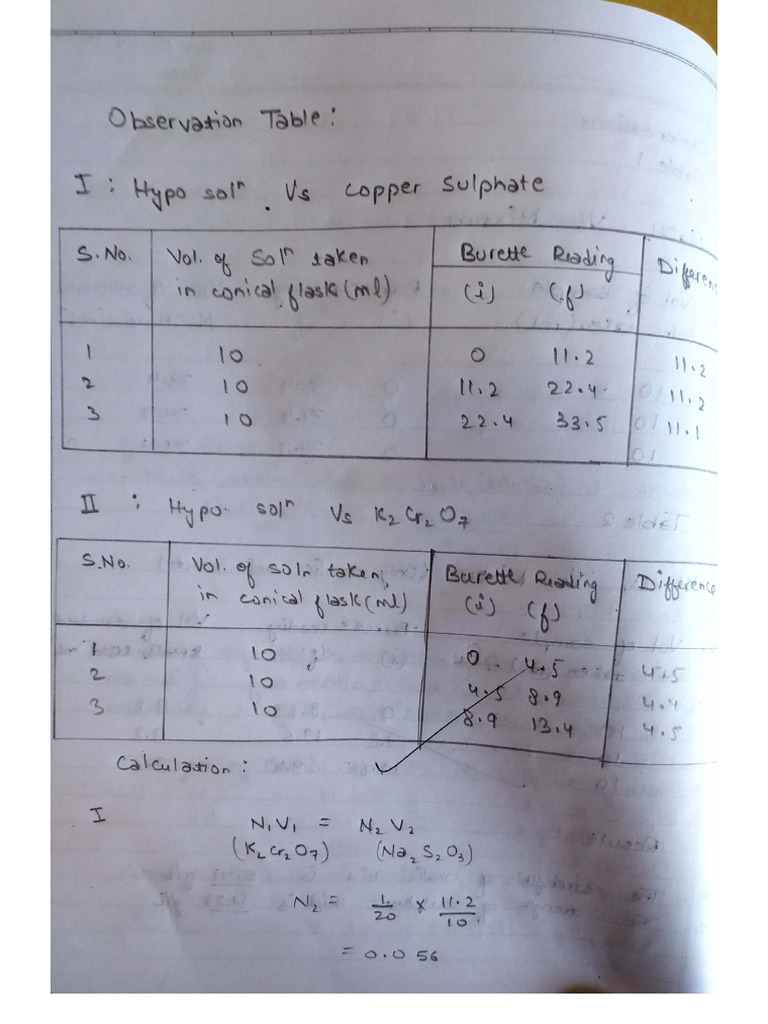 Observation Table:
I : Hypo solⁿ. Vs Copper Sulphate
S.No. Vol. of Solⁿ taken in conical flask(ml) Burette Reading (i) (f) Differenc
1 10 0 11.2 11.2
2 10 11.2 22.4 11.2
3 10 22.4 33.5 11.1
II : Hypo solⁿ Vs K₂Cr₂O₇
S.No. Vol. of soln taken in conical flask(ml) Burette Reading (i) (f) Difference
1 10 0 4.5 4.5
2 10 4.5 8.9 4.4
3 10 8.9 13.4 4.5
Calculation:
I
N₁V₁ = N₂V₂
(K₂Cr₂O₇) (Na₂S₂O₃)
N₂ = 1/20 × 11.2/10
= 0.056